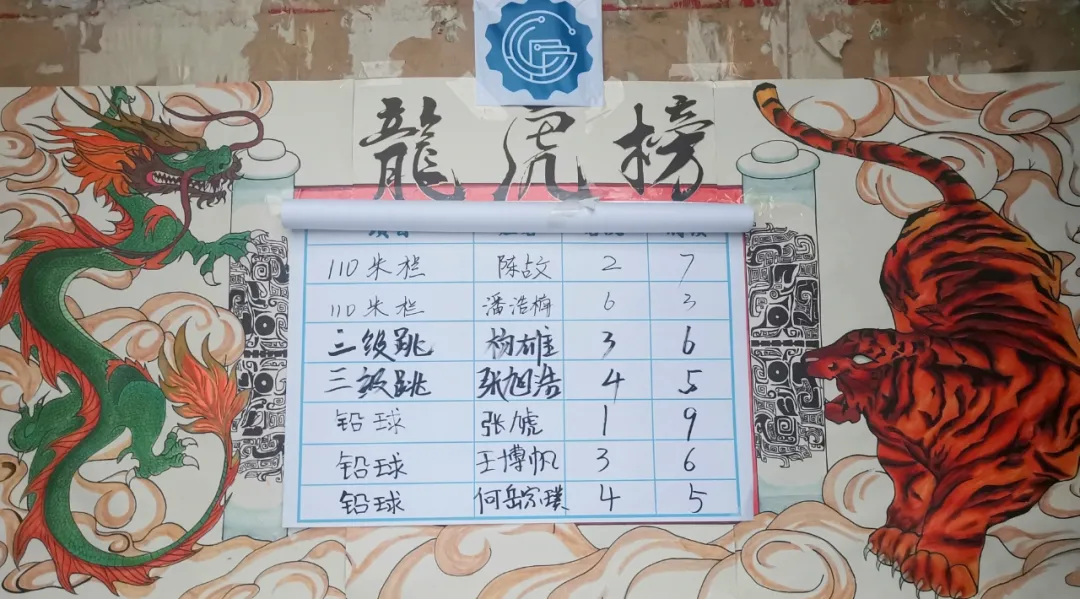 龍虎榜
110米栏 陈故文 2 7
110米栏 潘浩楠 6 3
三级跳 柯雄 3 6
三级跳 张旭浩 4 5
铅球 张虓 1 9
铅球 王博帆 3 6
铅球 何岳宗璞 4 5